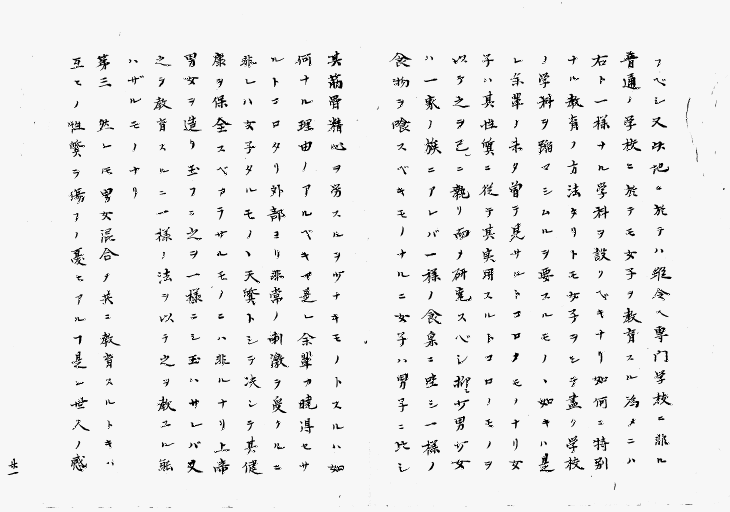 フベシ又此地ニ於テハ縦令ヘ専門学校ニ非ル
普通ノ学校ニ於テモ女子ヲ教育スル為メニハ
右ト一様ナル学科ヲ設クベキナリ如何ニ特別
ナル教育ノ方法タリトモ女子ヲシテ盡ク学校
ノ学科ヲ踏マシムルヲ要スルモノヽ如キハ是
レ余輩ノ未タ曽テ見サルトコロタモノナリ女
子ハ其性質ニ従テ其実用スルトコロノモノヲ
以テ之ヲ己ニ執リ而〆研究スベシ抑男女
ハ一家ノ族ニアレバ一様ノ食桌ニ坐シ一様ノ
食物ヲ喰スベキモノナルニ女子ハ男子ニ比シ
其筋骨精心ヲ労スルヿヅナキモノトスルハ如
何ナル理由ノアルベキヤ是レ余輩カ暁得セサ
ルトコロタリ外部ヨリ非常ノ刺激ヲ受クルニ
非レハ女子タルモノヽ天質トシテ决シテ其健
康ヲ保全スベアラザルモノニハ非ルナリ上帝
男女ヲ造リ玉フニ之ヲ一様ニシ玉ハサレバ又
之ヲ教育スルニ一様ノ法ヲ以テ之ヲ教ユル能
ハザルモノナリ
第三 然レモ男女混合〆共ニ教育スルトキハ
互ヒノ性質ヲ傷フノ憂ヒアルヿ是レ世人ノ感
廿一